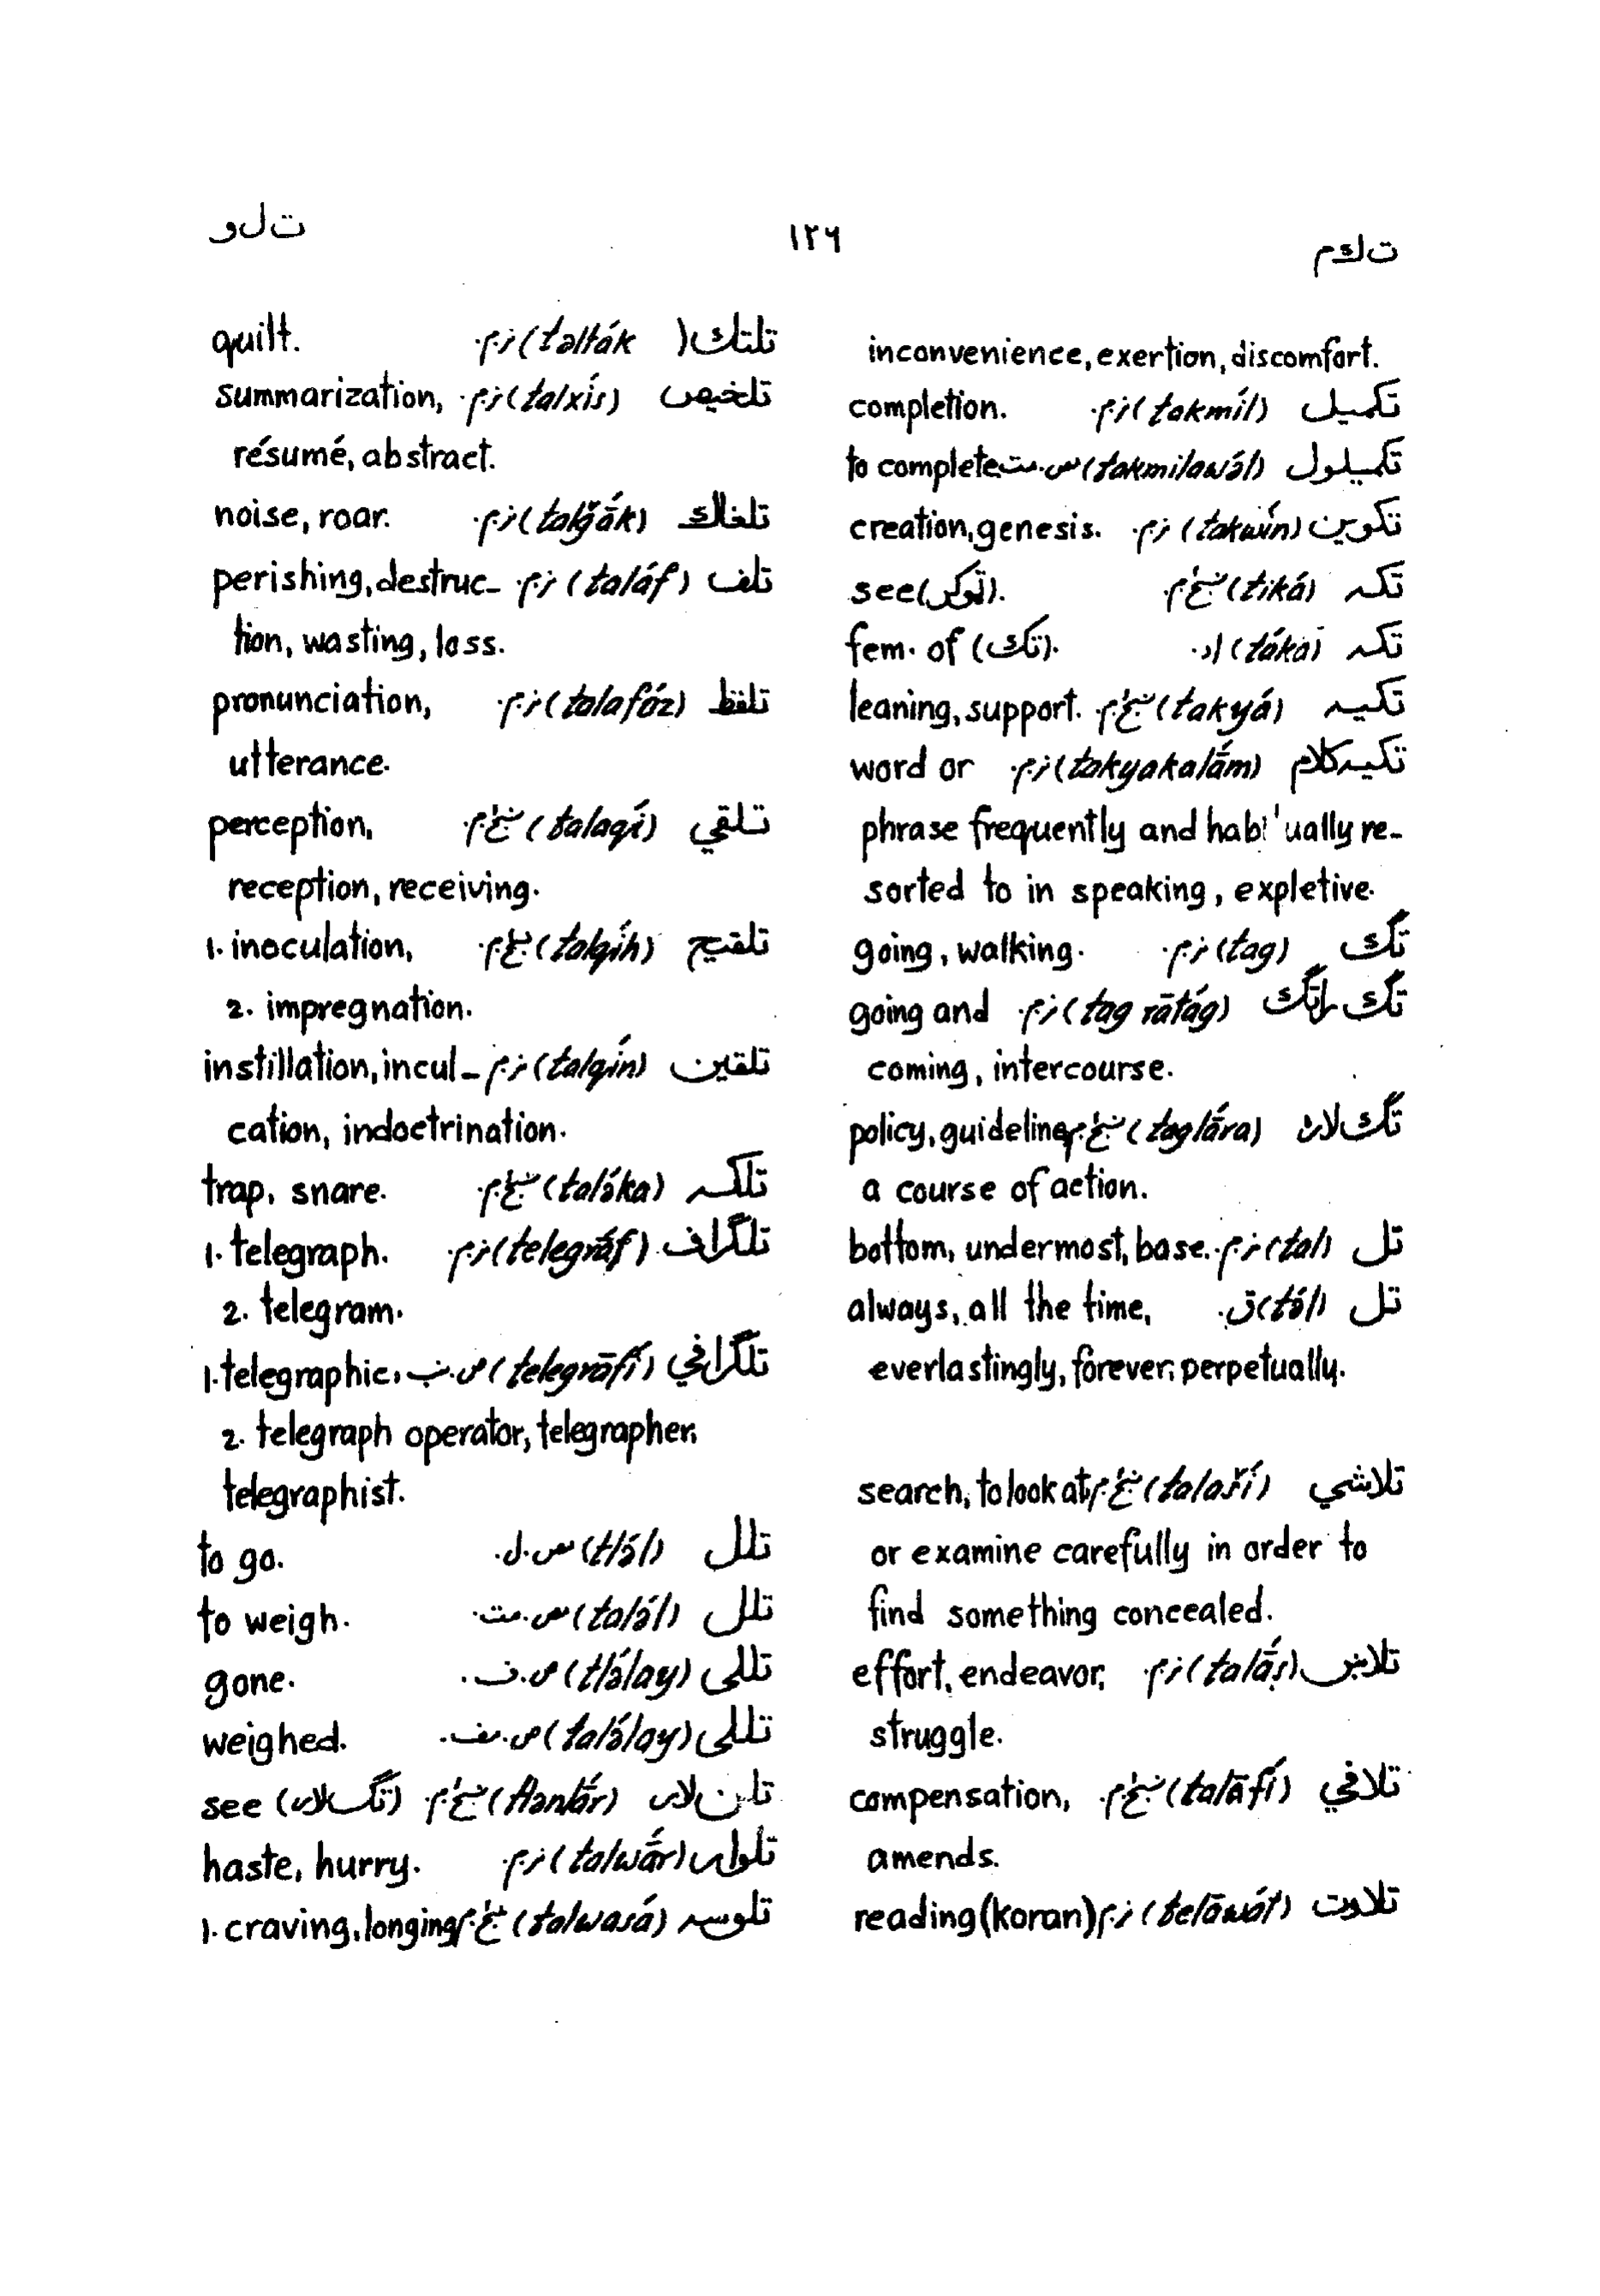 تکم
۱۲۶
تلو
inconvenience, exertion, discomfort.
تکمیل (takmíl) نر.م. completion.
تکمیلول (takmilawə́l) مص.مت to complete
تکوین (takwín) نر.م. creation, genesis.
تکه (tiká) ښځ.م. see (ټوکر).
تکه (táka) اد. fem. of (تک).
تکیه (takyá) ښځ.م. leaning, support.
تکیه کلام (takyakalā́m) نر.م. word or
phrase frequently and habitually re-
sorted to in speaking, expletive.
تګ (tag) نر.م. going, walking.
تګ راتګ (tag rātág) نر.م. going and
coming, intercourse.
تګ لاره (taglā́ra) ښځ.م. policy, guideline,
a course of action.
تل (tal) نر.م. bottom, undermost, base.
تل (tə́l) ق. always, all the time,
everlastingly, forever, perpetually.
تلاشي (talaší) ښځ.م. search, to look at
or examine carefully in order to
find something concealed.
تلاښ (talā́ṣ) نر.م. effort, endeavor,
struggle.
تلافي (talāfí) ښځ.م. compensation,
amends.
تلاوت (telāwát) نر.م. reading (koran)
تلتک (təlták) نر.م. quilt.
تلخیص (talxís) نر.م. summarization,
résumé, abstract.
تلغاک (talğā́k) نر.م. noise, roar.
تلف (taláf) نر.م. perishing, destruc-
tion, wasting, loss.
تلفظ (talafóz) نر.م. pronunciation,
utterance.
تلقي (talaqí) ښځ.م. perception,
reception, receiving.
تلقیح (talqíh) ښځ.م. 1. inoculation,
2. impregnation.
تلقین (talqín) نر.م. instillation, incul-
cation, indoctrination.
تلکه (talə́ka) ښځ.م. trap, snare.
تلګراف (telegrā́f) نر.م. 1. telegraph.
2. telegram.
تلګرافي (telegrāfí) ص.نسب 1. telegraphic,
2. telegraph operator, telegrapher,
telegraphist.
تلل (tlə́l) مص.ل. to go.
تلل (talə́l) مص.مت. to weigh.
تللی (tlə́lay) ص.ف. gone.
تللی (talə́lay) ص.مف. weighed.
تلن لار (tlənlā́r) ښځ.م. see (تګ لار)
تلوار (talwā́r) نر.م. haste, hurry.
تلوسه (talwasá) ښځ.م. 1. craving, longing